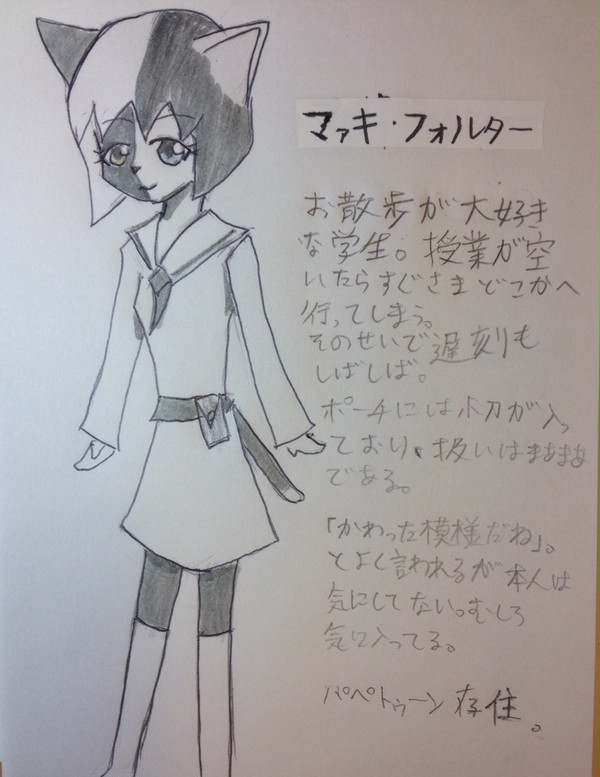 マァキ・フォルター
お散歩が大好き
な学生。授業が空
いたらすぐさまどこかへ
行ってしまう。
そのせいで遅刻も
しばしば。
ポーチには小刀が入っ
ており、扱いはまあまあ
である。
「かわった模様だね」。
とよく言われるが本人は
気にしてない。むしろ
気に入ってる。
パペトゥーン存住。